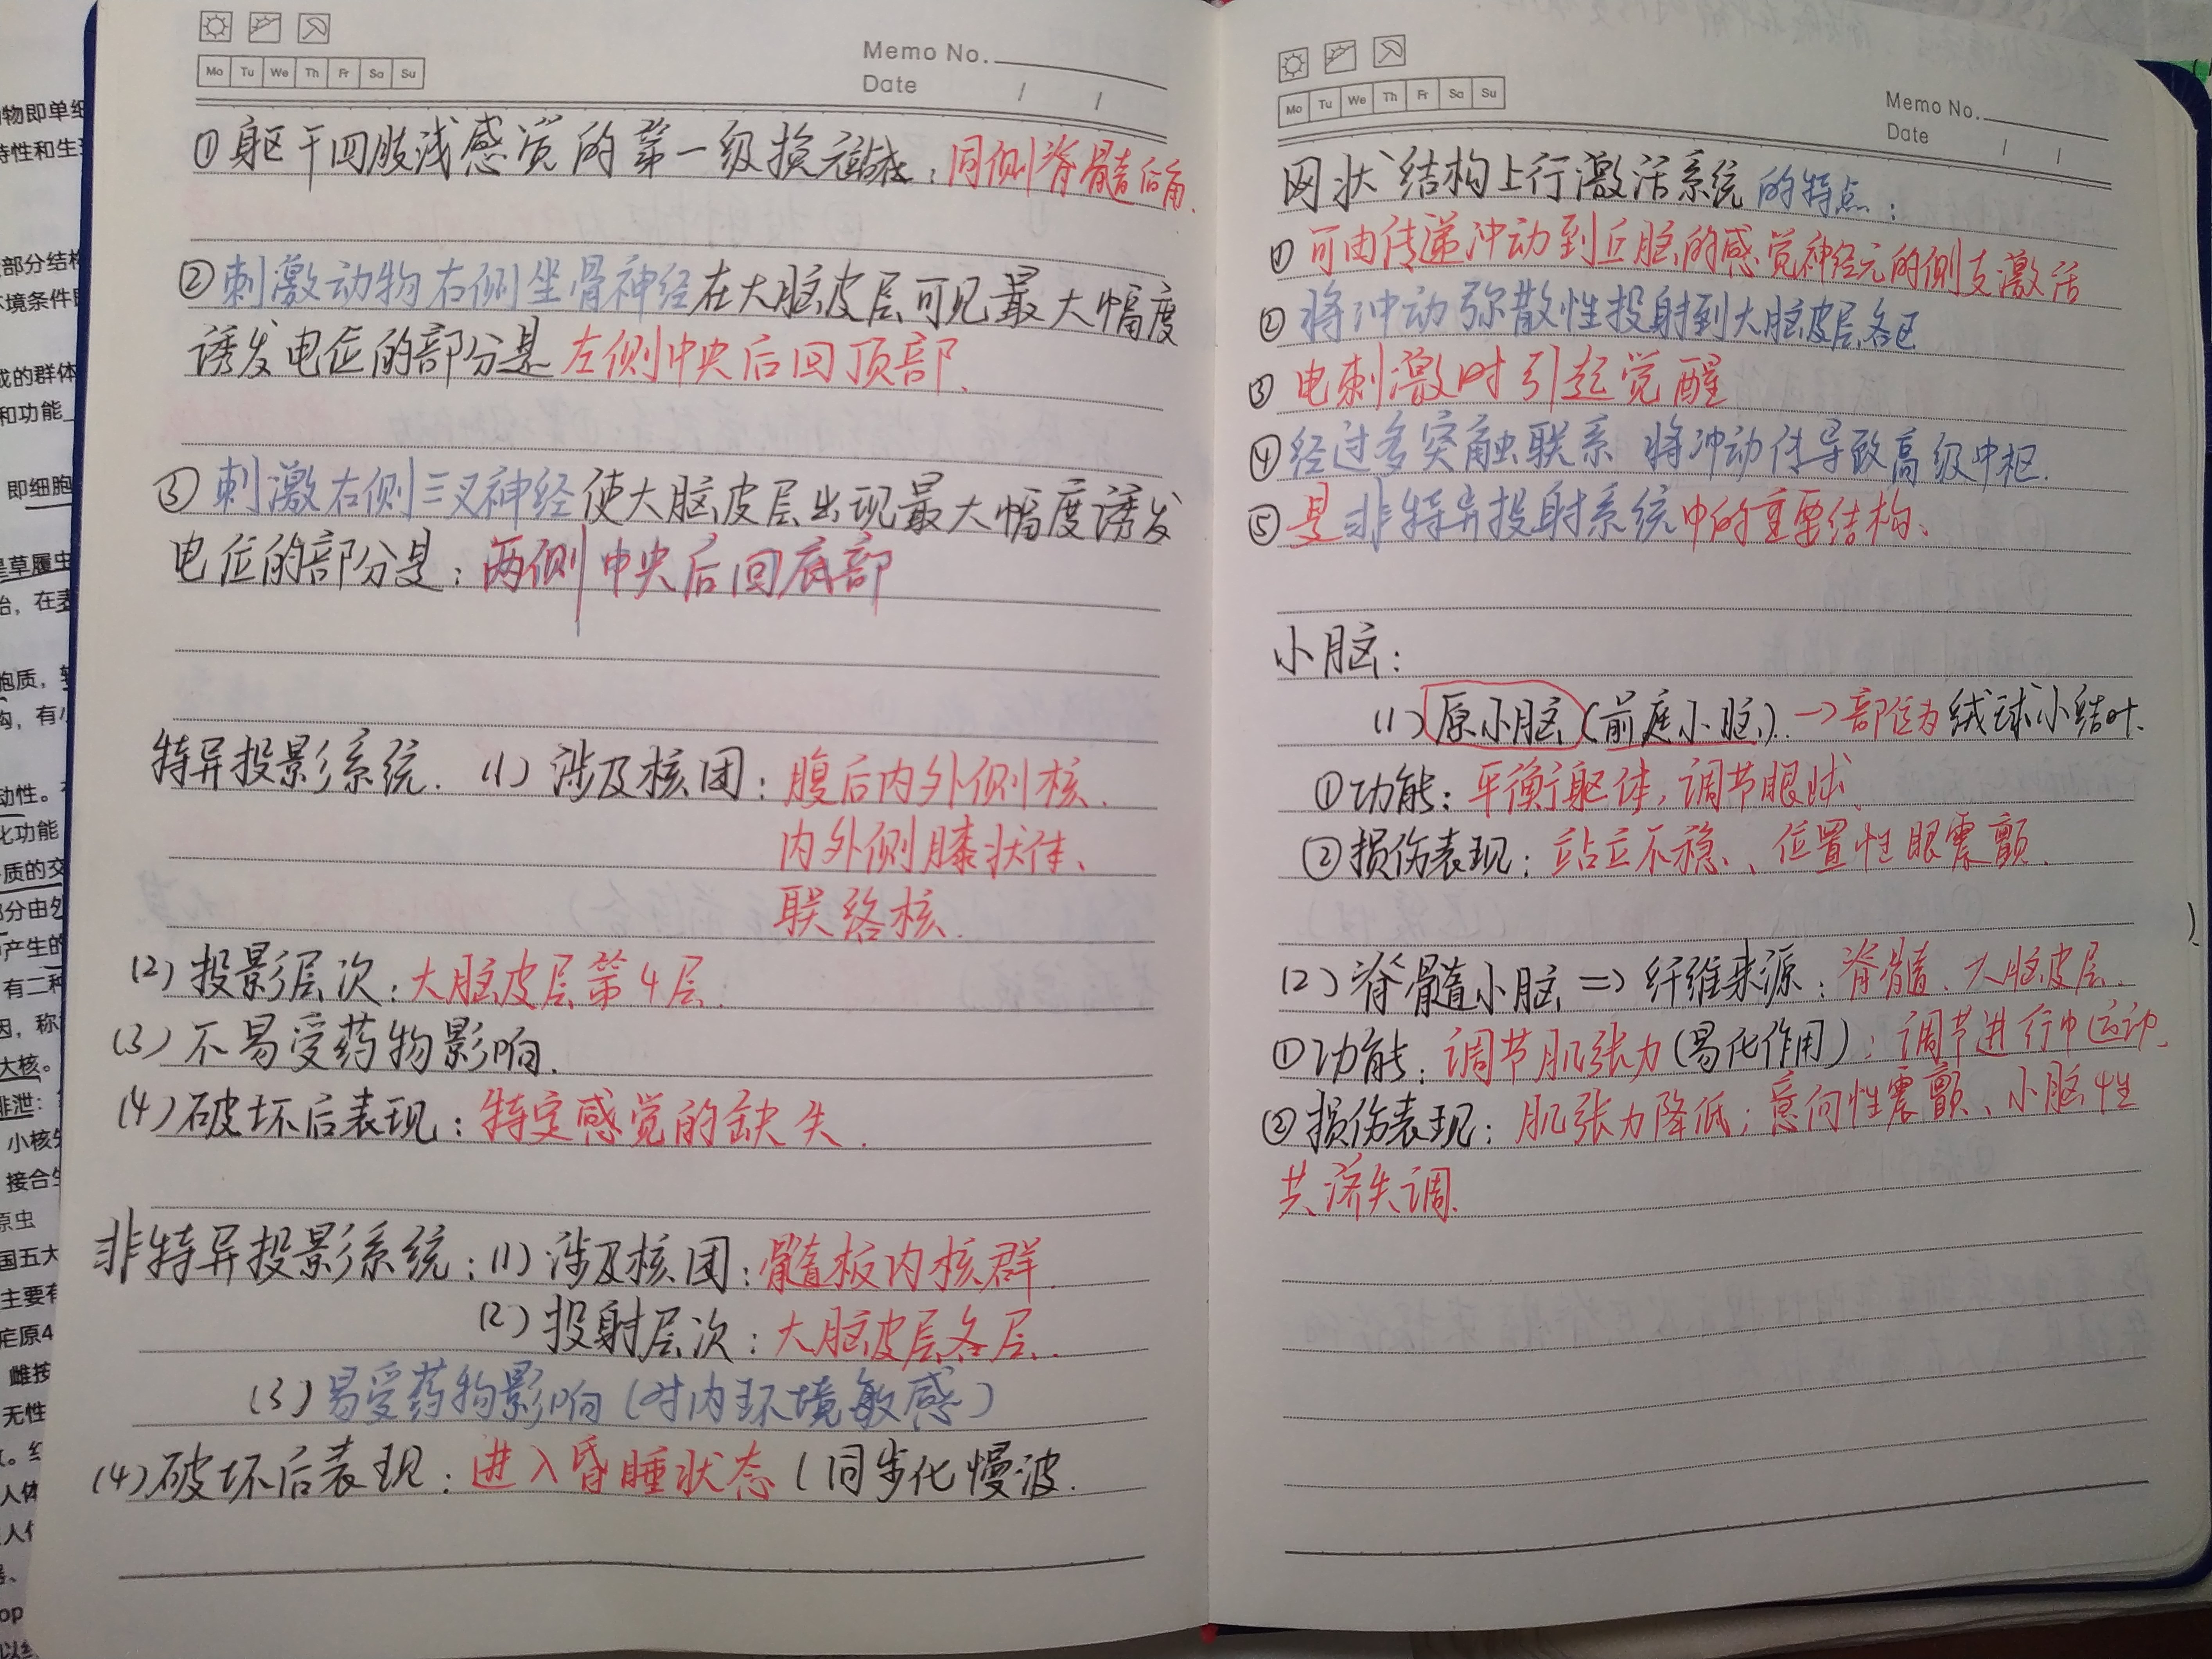 Mo Tu We Th Fr Sa Su
Memo No.
Date / /
①躯干四肢浅感觉的第一级换元站在：同侧脊髓后角.
②刺激动物右侧坐骨神经在大脑皮层可见最大幅度
诱发电位的部分是左侧中央后回顶部.
③刺激右侧三叉神经使大脑皮层出现最大幅度诱发
电位的部分是：两侧中央后回底部
特异投影系统. (1) 涉及核团：腹后内外侧核.
内外侧膝状体、
联络核.
(2) 投影层次：大脑皮层第4层.
(3) 不易受药物影响.
(4) 破坏后表现：特定感觉的缺失.
非特异投影系统：(1) 涉及核团：髓板内核群.
(2) 投射层次：大脑皮层各层.
(3) 易受药物影响（对内环境敏感）
(4) 破坏后表现：进入昏睡状态（同步化慢波.
Mo Tu We Th Fr Sa Su
Memo No.
Date / /
网状结构上行激活系统的特点：
① 可由传递冲动到丘脑的感觉神经元的侧支激活
② 将冲动弥散性投射到大脑皮层各区
③ 电刺激时引起觉醒
④ 经过多突触联系 将冲动传导致高级中枢.
⑤ 是非特异投射系统中的重要结构.
小脑：
(1) 原小脑（前庭小脑）.→部位为绒球小结叶.
①功能：平衡躯体，调节眼球.
②损伤表现：站立不稳、位置性眼震颤.
(2) 脊髓小脑 => 纤维来源：脊髓、大脑皮层.
①功能：调节肌张力（易化作用）；调节进行中运动.
②损伤表现：肌张力降低；意向性震颤、小脑性
共济失调.
物即单细
特性和生
部分结构
环境条件
成的群体
和功能
即细胞
是草履虫
胞质，
构，有
动性。
化功能
质的交
部分由
产生的
有二种
因，称
大核。
排泄：
小核
接合
原虫
国五大
主要有
疟原4
雌按
无性
人体
op